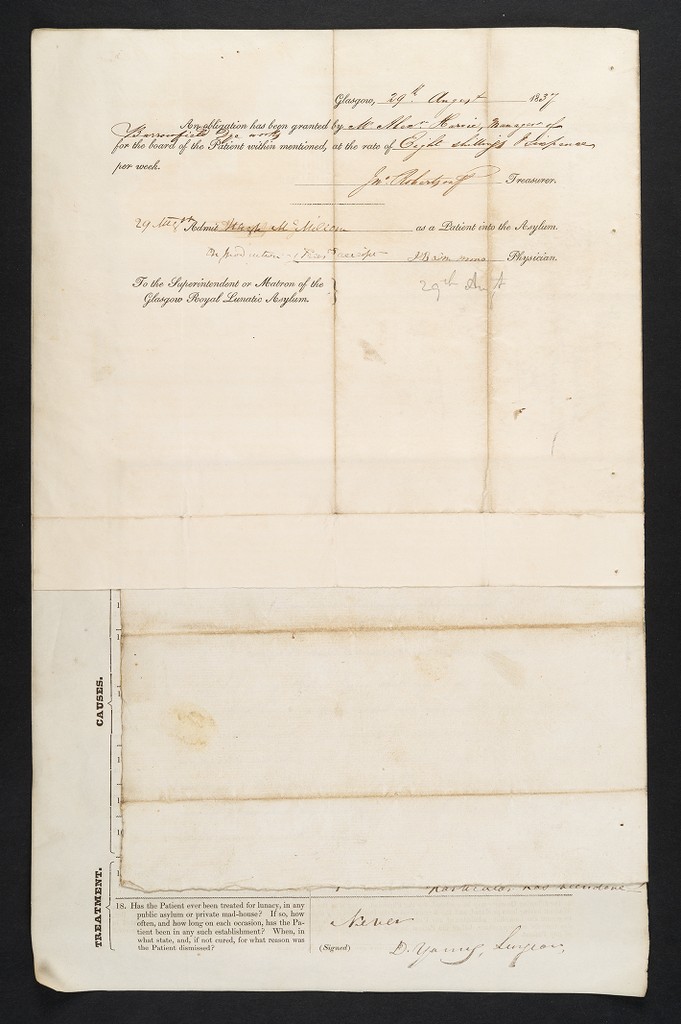 Glasgow, 29th August 1837
An obligation has been granted by Mr Alexr Harvie, Manager of
Barrowfield Dye works
for the board of the Patient within mentioned, at the rate of Eight shillings & Sixpence
per week.
Jno Robertson Treasurer.
29 Augt Admit McMillan as a Patient into the Asylum.
On production of Treasrs receipt Physician.
29th Augt
To the Superintendent or Matron of the
Glasgow Royal Lunatic Asylum.
CAUSES.
TREATMENT.
particular has
18. Has the Patient ever been treated for lunacy, in any
public asylum or private mad-house? If so, how
often, and how long on each occasion, has the Pa-
tient been in any such establishment? When, in
what state, and, if not cured, for what reason was
the Patient dismissed?
Never
(Signed) D. Young, Surgeon,